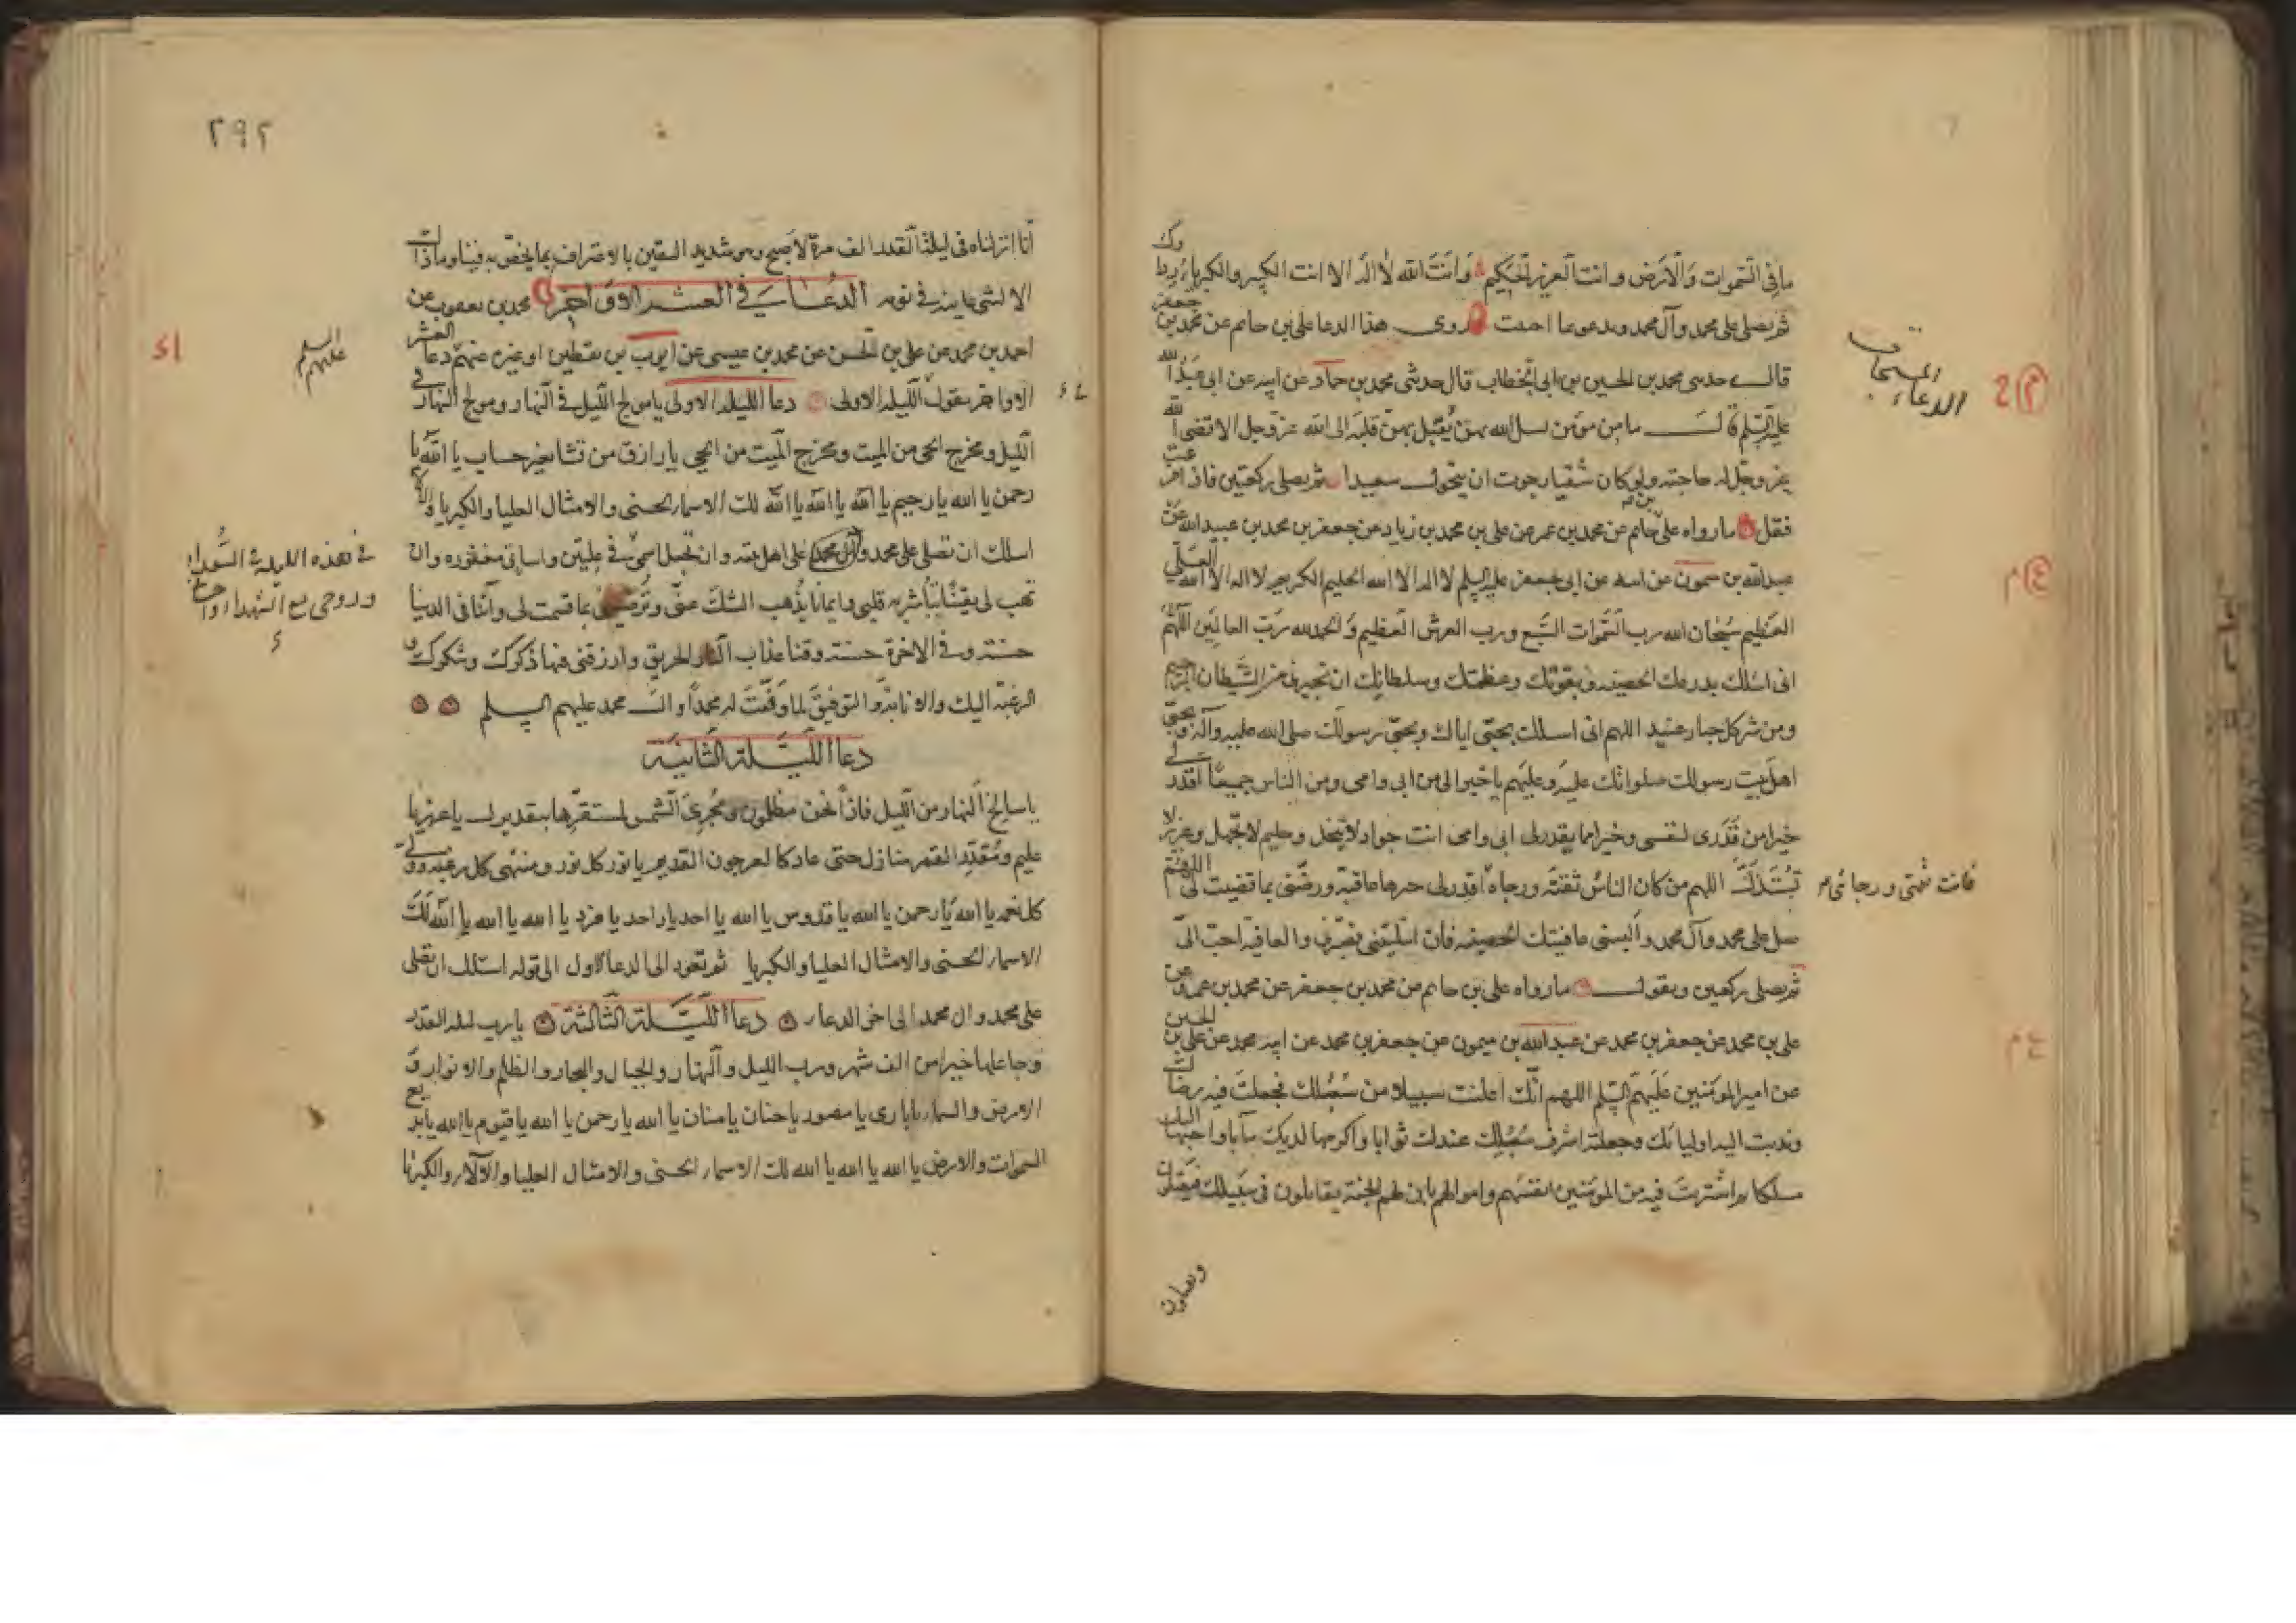 ما في السموات والارض وانت العزيز الحكيم وانت الله لا اله الا انت الكبير والكبرياء رداؤك
ثم يصلي على محمد وآل محمد ويدعو بما احببت روى هذا الدعا علي بن حاتم عن محمد بن جعفر
قال حدثني محمد بن الحسين بن ابي الخطاب قال حدثني محمد بن حماد عن ابيه عن ابي عبدالله
عليه السلم قال ما من مؤمن يسل الله بهن يقبل بهن قلبه الى الله عز وجل الا قضى الله
عز وجل له حاجته ولو كان شقيا رجوت ان يتحول سعيدا ثم يصلي ركعتين فاذا فرغت
فقل ما رواه علي بن حاتم عن محمد بن عمر عن علي بن محمد بن زياد عن جعفر بن محمد بن عبيدالله عن
عبدالله بن ميمون عن ابيه عن ابي جعفر عليه السلم لا اله الا الله الحليم الكريم لا اله الا الله العلي
العظيم سبحان الله رب السموات السبع ورب العرش العظيم والحمد لله رب العالمين اللهم
اني اسئلك بدرعك الحصينة وبقوتك وعظمتك وسلطانك ان تجيرني من الشيطان الرجيم
ومن شر كل جبار عنيد اللهم اني اسئلك بحبي اياك وبحبي رسولك صلى الله عليه وآله وبحبي
اهل بيت رسولك صلواتك عليه وعليهم يا خيرا لي من ابي وامي ومن الناس جميعا اقدر لي
خيرا من قدري لنفسي وخيرا مما يقدر لي ابي وامي انت جواد لا يبخل وحليم لا تجهل وعزيز لا
تستذل اللهم من كان الناس ثقته ورجاه اقدر لي خيرها عاقبة ورضني بما قضيت لي اللهم
فانت ثقتي ورجائي
صل على محمد وآل محمد والبسني عافيتك الحصينة فان ابتليتني فصبرني والعافية احب الي
ثم يصلي ركعتين ويقول ما رواه علي بن حاتم عن محمد بن جعفر عن محمد بن عمرو عن
علي بن محمد عن جعفر بن محمد عن عبد الله بن ميمون عن جعفر بن محمد عن ابيه محمد عن علي بن الحسين
عن امير المؤمنين عليهم السلم اللهم انك اعلنت سبيلا من سبلك فجعلت فيه رضاك
وندبت اليه اوليائك وجعلته اشرف سبلك عندك ثوابا واكرمها لديك مآبا واحبها اليك
مسلكا ثم اشتريت فيه من المؤمنين انفسهم واموالهم بان لهم الجنة يقاتلون في سبيلك فيقتلون
ويقتلون
٢٩٢
انا انزلناه في ليلة القدر الف مرة لاصبح وهو شديد اليقين بالاعتراف بما يخص به فينا وما ذاك
الا لشي عاينه في نومه الدعاء في العشر الاواخر محمد بن يعقوب عن
احمد بن محمد عن علي بن الحسن عن محمد بن عيسى عن ايوب بن يقطين او غيره عنهم دعا العشر
عليهم السلم
الاواخر يقول الليلة الاولى دعا الليلة الاولى يا مولج الليل في النهار ومولج النهار في
الليل ومخرج الحي من الميت ومخرج الميت من الحي يا رازق من تشا بغير حساب يا الله يا
رحمن يا الله يا رحيم يا الله يا الله يا الله لك الاسماء الحسنى والامثال العليا والكبريا والآلاء
اسلك ان تصلي على محمد وآل محمد وعلى اهل بيته وان تجعل اسمي في عليين واساتي مغفورة وان
في هذه الليلة في السعداء
وروحي مع الشهداء واحساني
تهب لي يقينا تباشر به قلبي وايمانا يذهب الشك عني وترضيني بما قسمت لي وآتنا في الدنيا
حسنة وفي الاخرة حسنة وقنا عذاب النار الحريق وارزقني فيها ذكرك وشكرك و
الرغبة اليك والانابة والتوفيق لما وفقت له محمدا وال محمد عليهم السلم
دعا الليلة الثانية
يا سالخ النهار من الليل فاذا نحن مظلمون ومجري الشمس لمستقرها بتقديرك يا عزيز يا
عليم ومقدر القمر منازل حتى عاد كالعرجون القديم يا نور كل نور ومنتهى كل رغبة وولي
كل نعمة يا الله يا رحمن يا الله يا قدوس يا الله يا احد يا واحد يا فرد يا الله يا الله يا الله لك
الاسماء الحسنى والامثال العليا والكبريا ثم تعود الى الدعا الاول الى قوله اسئلك ان تصلي
على محمد وال محمد الى اخر الدعاء دعا الليلة الثالثة يا رب ليلة القدر
وجاعلها خيرا من الف شهر ورب الليل والنهار والجبال والبحار والظلم والانوار و
الارض والسماء يا باري يا مصور يا حنان يا منان يا الله يا رحمن يا الله يا قيوم يا الله يا بديع
السموات والارض يا الله يا الله يا الله لك الاسماء الحسنى والامثال العليا والآلاء والكبريا